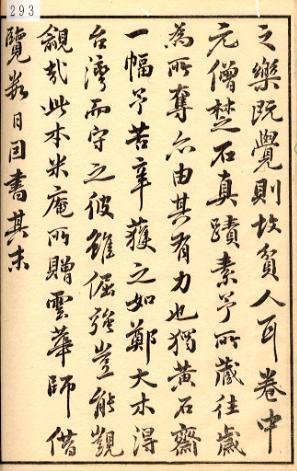 293
之樂既覺則故貧人耳卷中
元僧楚石真蹟素予所藏往歲
為所奪亦由其有力也獨黃石齋
一幅予苦辛獲之如鄭大木得
台灣而守之彼雖倔強豈能覬
覦哉此本米庵所贈雲華師借
覽數日因書其末